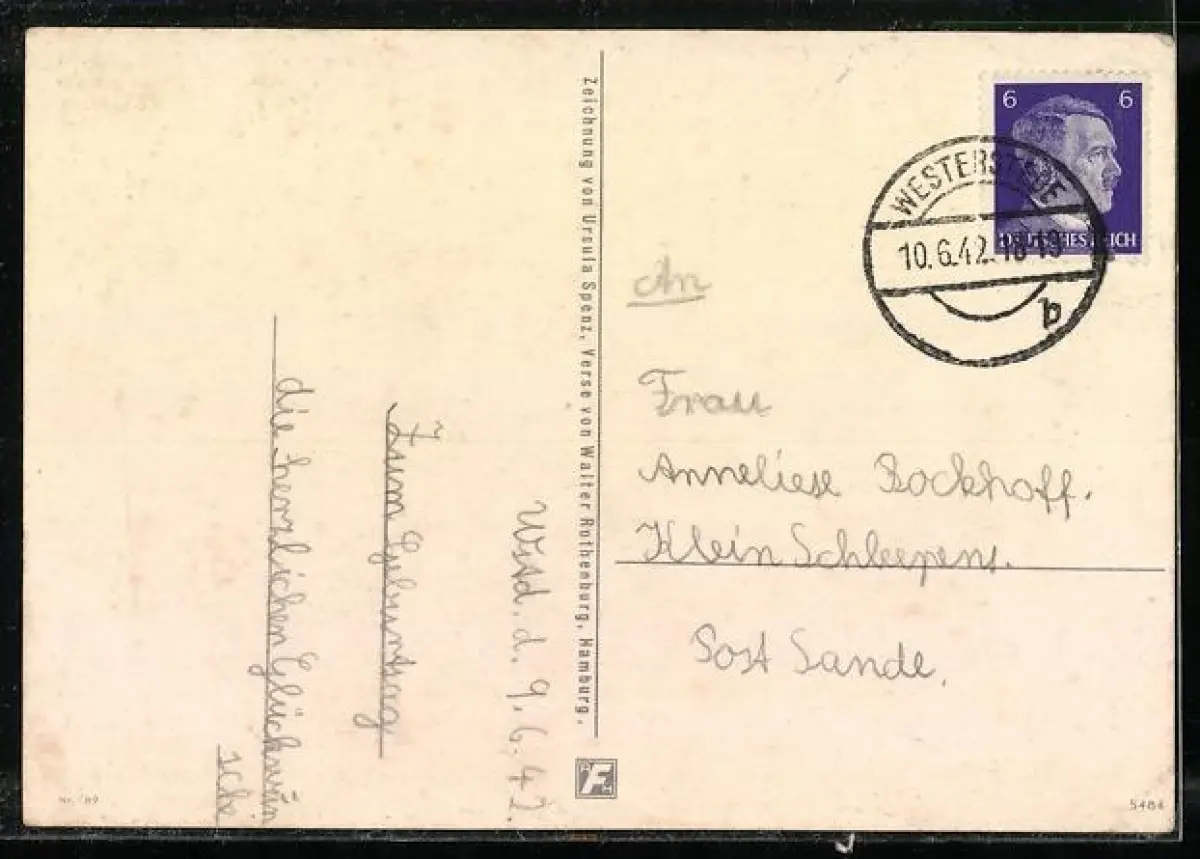 Wstd. d. 9.6.42.
Zum Geburtstag
die herzlichen Glückwün
sche
Zeichnung von Ursula Spenz, Verse von Walter Rothenburg, Hamburg.
6 6
DEUTSCHES REICH
WESTERSTEDE
10.6.42.18-19
b
An
Frau
Anneliese Bockhoff.
Klein Scheepens.
Post Sande.
AFH
5484